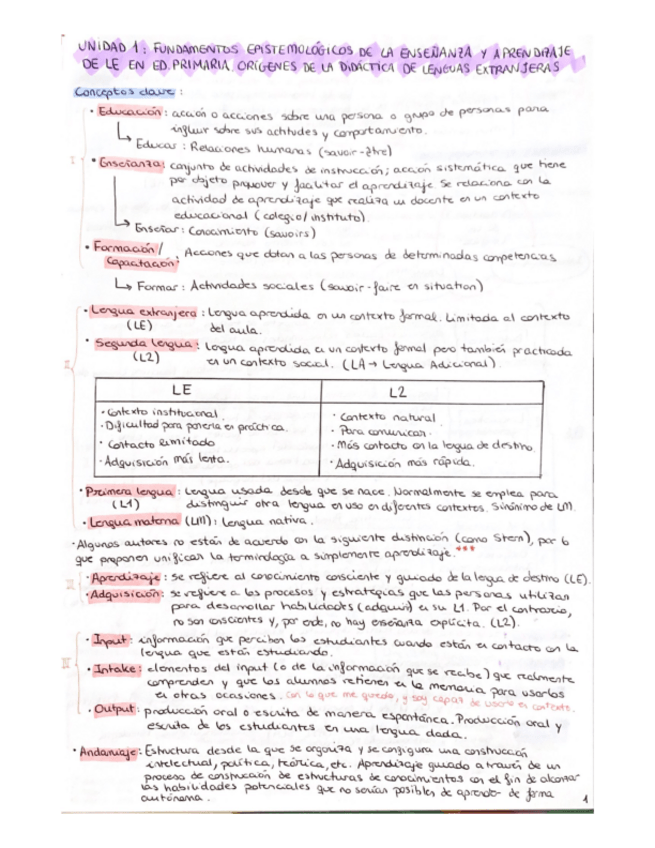 UNIDAD 1: FUNDAMENTOS EPISTEMOLÓGICOS DE LA ENSEÑANZA Y APRENDIZAJE
DE LE EN ED. PRIMARIA. ORÍGENES DE LA DIDÁCTICA DE LENGUAS EXTRANJERAS
Conceptos clave:
· Educación: acción o acciones sobre una persona o grupo de personas para
influir sobre sus actitudes y comportamiento.
↳ Educar: Relaciones humanas (savoir-être)
I
· Enseñanza: conjunto de actividades de instrucción; acción sistemática que tiene
por objeto promover y facilitar el aprendizaje. Se relaciona con la
actividad de aprendizaje que realiza un docente en un contexto
educacional (colegio/instituto).
↳ Enseñar: Conocimiento (savoirs)
· Formación/
Capacitación: Acciones que dotan a las personas de determinadas competencias
↳ Formar: Actividades sociales (savoir-faire en situation)
· Lengua extranjera: Lengua aprendida en un contexto formal. Limitada al contexto
(LE) del aula.
· Segunda lengua: Lengua aprendida en un contexto formal pero también practicada
II
(L2) en un contexto social. (LA → Lengua Adicional).
LE L2
· Contexto institucional. · Contexto natural
· Dificultad para ponerla en práctica. · Para comunicar.
· Contacto limitado · Más contacto con la lengua de destino.
· Adquisición más lenta. · Adquisición más rápida.
· Primera lengua: Lengua usada desde que se nace. Normalmente se emplea para
(L1) distinguir otra lengua en uso en diferentes contextos. Sinónimo de LM.
· Lengua materna (LM): lengua nativa.
· Algunos autores no están de acuerdo con la siguiente distinción (como Stern), por lo
que proponen unificar la terminología a simplemente aprendizaje. ***
III
· Aprendizaje: se refiere al conocimiento consciente y guiado de la lengua de destino (LE).
· Adquisición: se refiere a los procesos y estrategias que las personas utilizan
para desarrollar habilidades (adquirir) en su L1. Por el contrario,
no son conscientes y, por ende, no hay enseñanza explícita. (L2).
· Input: información que perciben los estudiantes cuando están en contacto con la
lengua que están estudiando.
IV
· Intake: elementos del input (o de la información que se recibe) que realmente
comprenden y que los alumnos retienen en la memoria para usarlos
en otras ocasiones. Con lo que me quedo, y soy capaz de usarlo en contexto.
· Output: producción oral o escrita de manera espontánea. Producción oral y
escrita de los estudiantes en una lengua dada.
· Andamiaje: Estructura desde la que se organiza y se configura una construcción
intelectual, política, teórica, etc. Aprendizaje guiado a través de un
proceso de construcción de estructuras de conocimientos con el fin de alcanzar
las habilidades potenciales que no serían posibles de aprender de forma
autónoma.
1